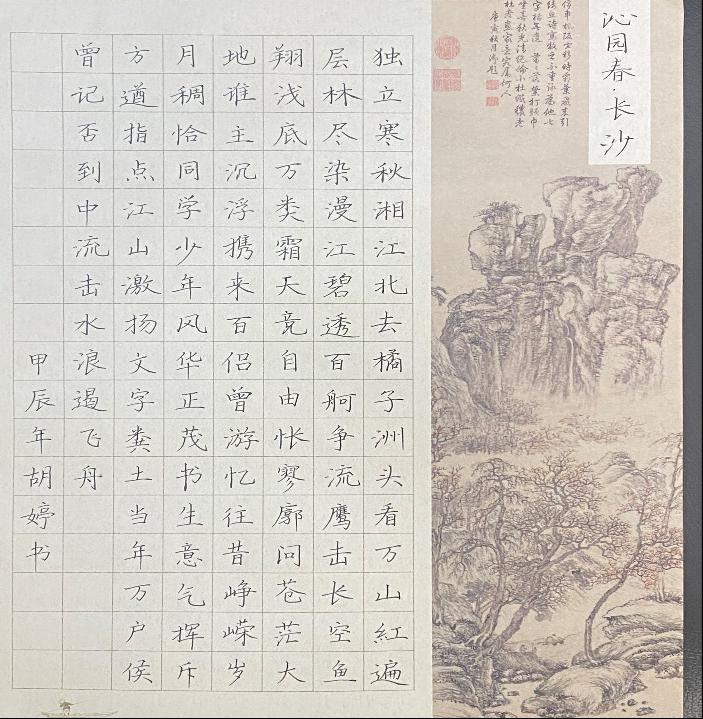 沁园春·长沙
庚寅秋月御题
独立寒秋湘江北去橘子洲头看万山紅遍
层林尽染漫江碧透百舸争流鹰击长空鱼
翔浅底万类霜天竞自由怅寥廓问苍茫大
地谁主沉浮携来百侣曾游忆往昔峥嵘岁
月稠恰同学少年风华正茂书生意气挥斥
方遒指点江山激扬文字粪土当年万户侯
曾记否到中流击水浪遏飞舟
甲辰年胡婷书